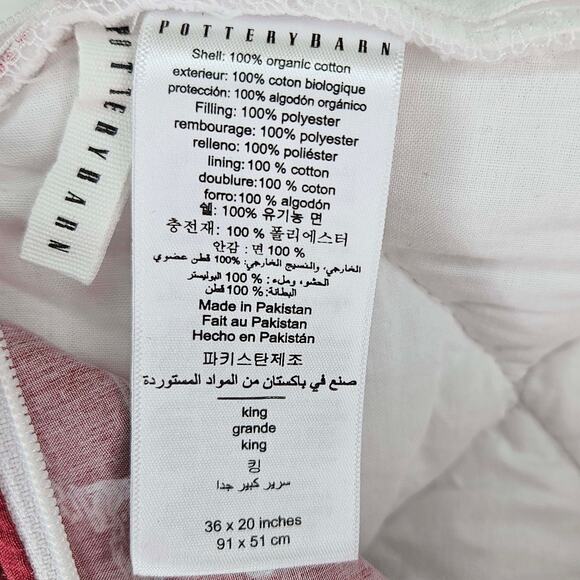 POTTERY BARN
POTTERY BARN
Shell: 100% organic cotton
exterieur: 100% coton biologique
protección: 100% algodón orgánico
Filling: 100% polyester
rembourage: 100% polyester
relleno: 100% poliéster
lining: 100 % cotton
doublure: 100 % coton
forro: 100 % algodón
쉘: 100% 유기농 면
충전재: 100 % 폴리에스터
안감 : 면 100 %
الخارجي، والنسيج الخارجي: %100 قطن عضوي
الحشو، وملء: % 100 البوليستر
البطانة: % 100 قطن
Made in Pakistan
Fait au Pakistan
Hecho en Pakistán
파키스탄제조
صنع في باكستان من المواد المستوردة
king
grande
king
킹
سرير كبير جدا
36 x 20 inches
91 x 51 cm